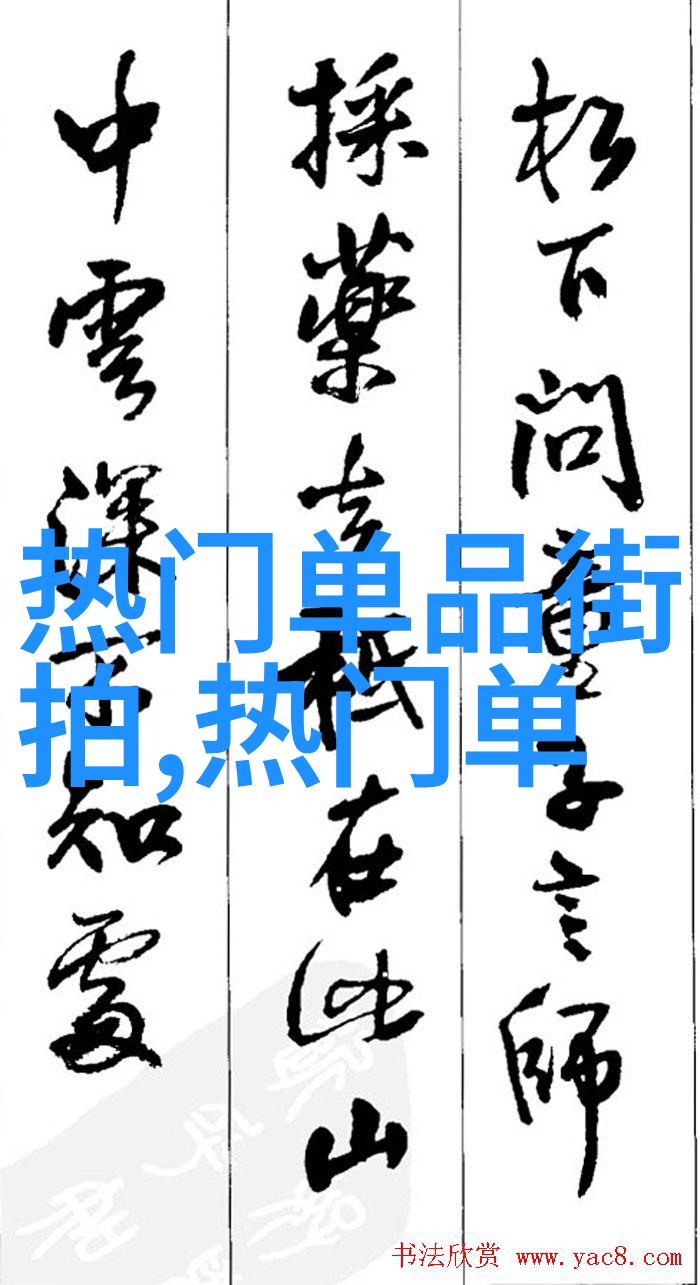 松下問童子言師
採藥去祇在此山
中雲深不知處
热门单品街
拍,热门单
书法欣赏 www.yac8.com